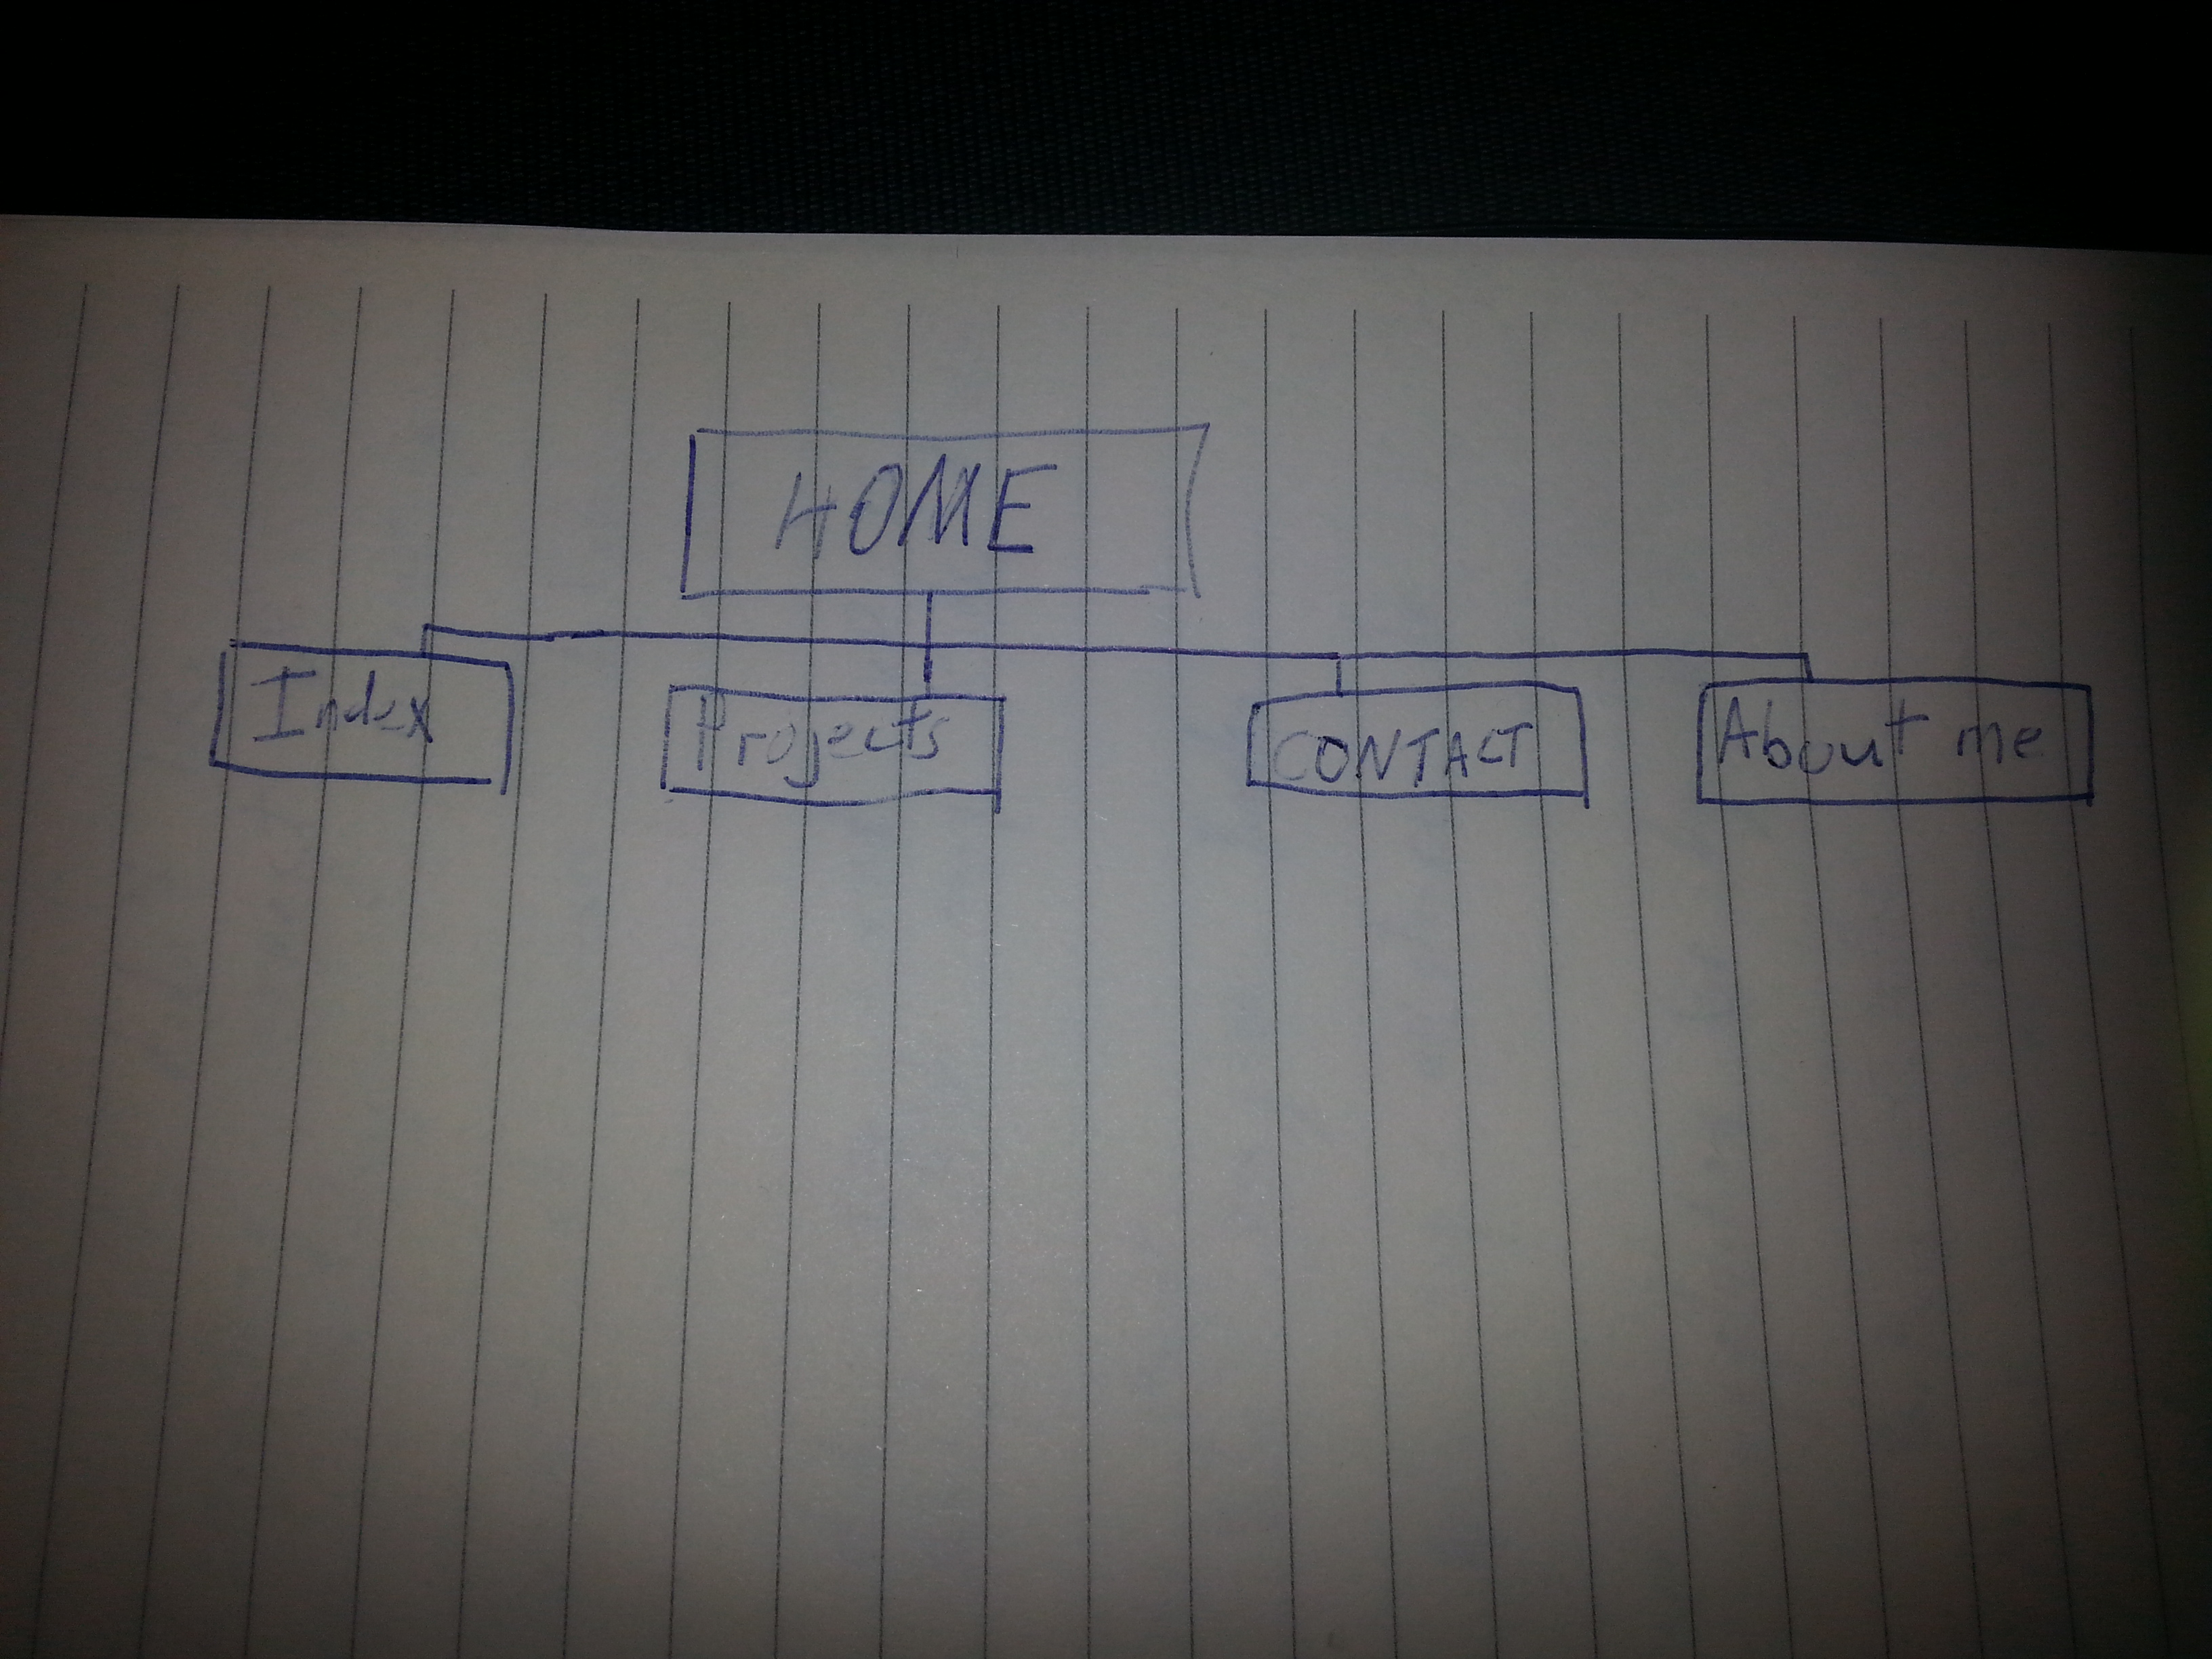 HOME
Index
Projects
CONTACT
About me